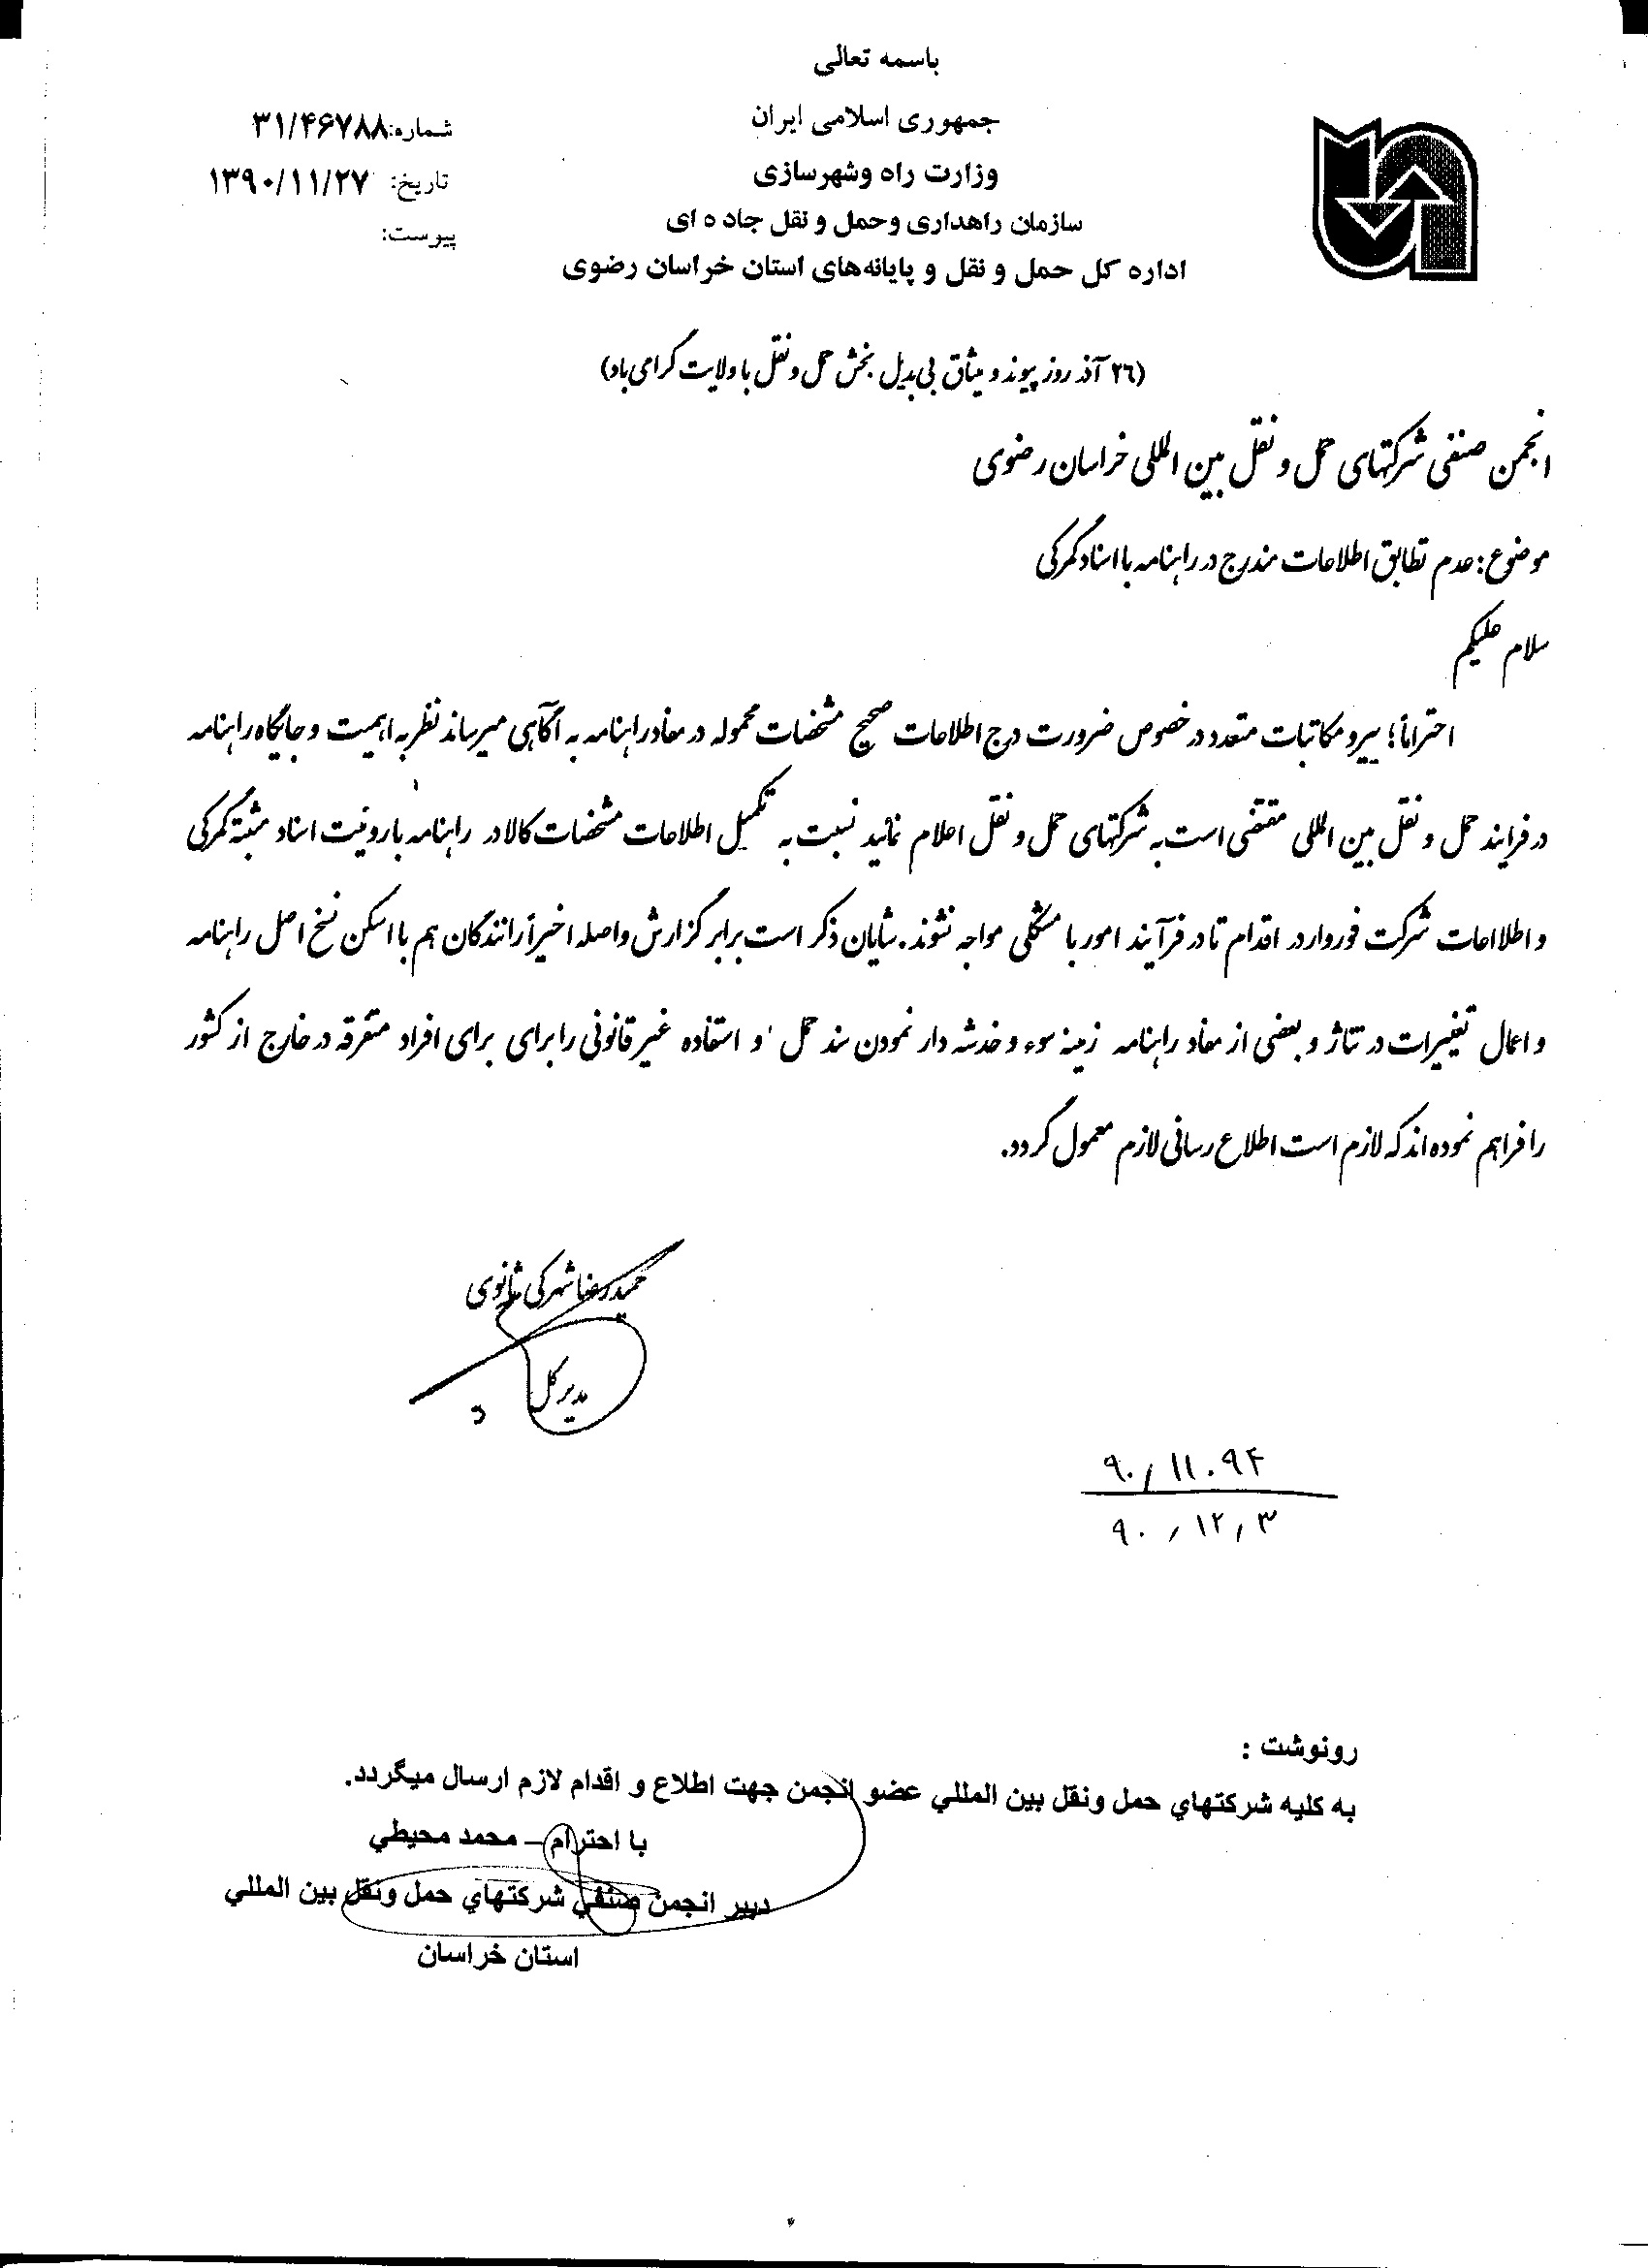 باسمه تعالی
جمهوری اسلامی ایران
وزارت راه وشهرسازی
سازمان راهداری وحمل و نقل جاده ای
اداره کل حمل و نقل و پایانه‌های استان خراسان رضوی
شماره:۳۱/۴۶۷۸۸
تاریخ: ۱۳۹۰/۱۱/۲۷
پیوست:
(۲۶ آذر روز پیوند و میثاق بی بدیل بخش حمل و نقل با ولایت گرامی باد)
انجمن صنفی شرکتهای حمل و نقل بین المللی خراسان رضوی
موضوع: عدم تطابق اطلاعات مندرج در راهنامه با اسناد گمرکی
سلام علیکم
احتراماً؛ پیرو مکاتبات متعدد در خصوص ضرورت درج اطلاعات صحیح مشخصات محموله در مفاد راهنامه به آگاهی میرساند نظر به اهمیت و جایگاه راهنامه
در فرایند حمل و نقل بین المللی مقتضی است به شرکتهای حمل و نقل اعلام نمائید نسبت به تکمیل اطلاعات مشخصات کالا در راهنامه با رویت اسناد مثبته گمرکی
و اطلااعات شرکت فوروارد در اقدام تا در فرآیند امور با مشکلی مواجه نشوند. شایان ذکر است برابر گزارش واصله اخیراً رانندگان هم با اسکن نسخ اصل راهنامه
و اعمال تغییرات در تناژ و بعضی از مفاد راهنامه زمینه سوء و خدشه دار نمودن سند حمل و استفاده غیر قانونی را برای برای افراد متفرقه در خارج از کشور
را فراهم نموده اند که لازم است اطلاع رسانی لازم معمول گردد.
حمیدرضا شهرکی ثانوی
مدیر کل
۹۰/۱۱۰۹۴
۹۰/۱۲/۳
رونوشت :
به کلیه شرکتهاي حمل ونقل بین المللي عضو انجمن جهت اطلاع و اقدام لازم ارسال میگردد.
با احترام – محمد محیطي
دبیر انجمن صنفي شرکتهاي حمل ونقل بین المللي
استان خراسان